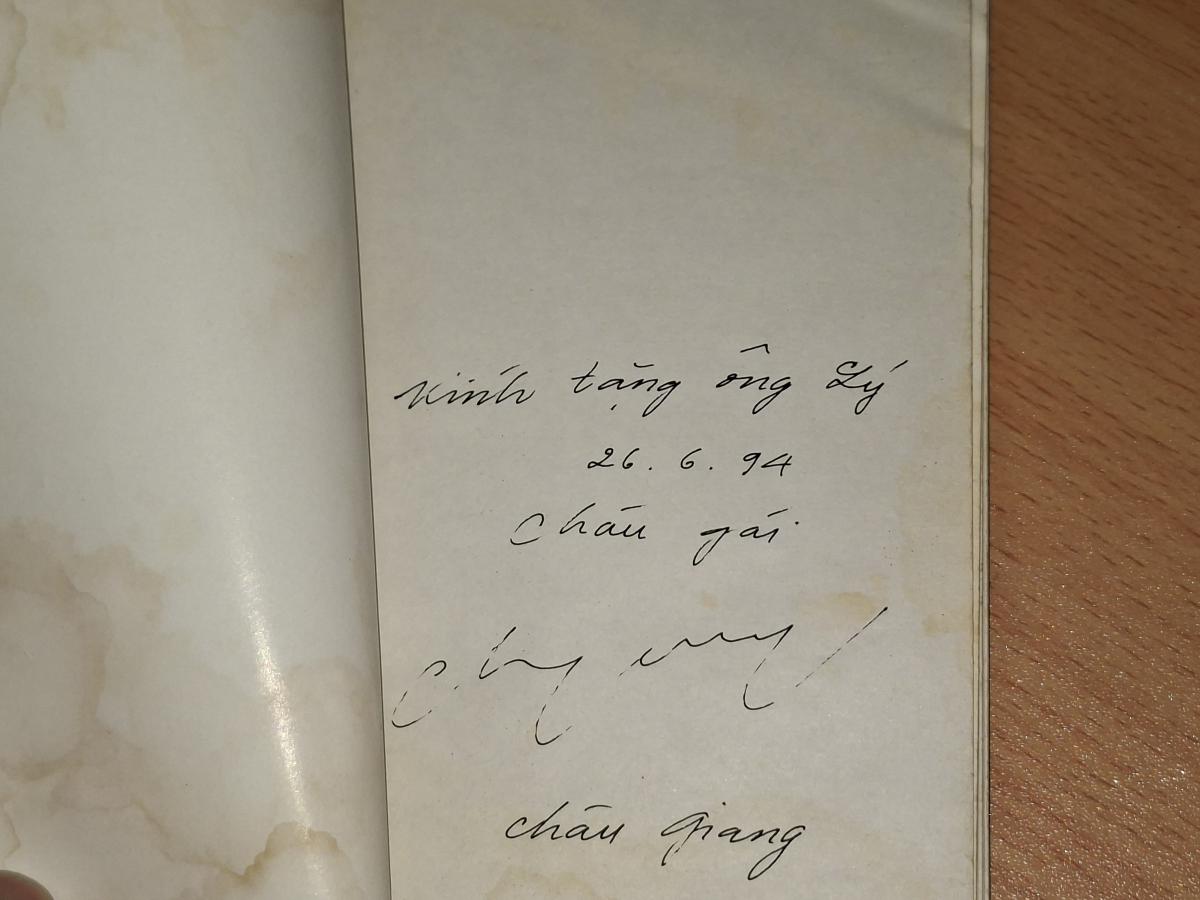 Kính tặng ông Lý
26.6.94
Cháu gái
Châu Giang